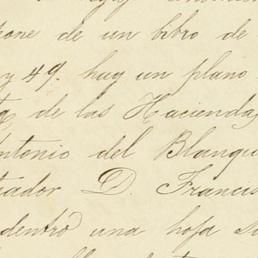 pone de un libro de
y 49. hay un plano
de las Haciendas
Antonio del Blanqui
D. Francis
dentro una hoja